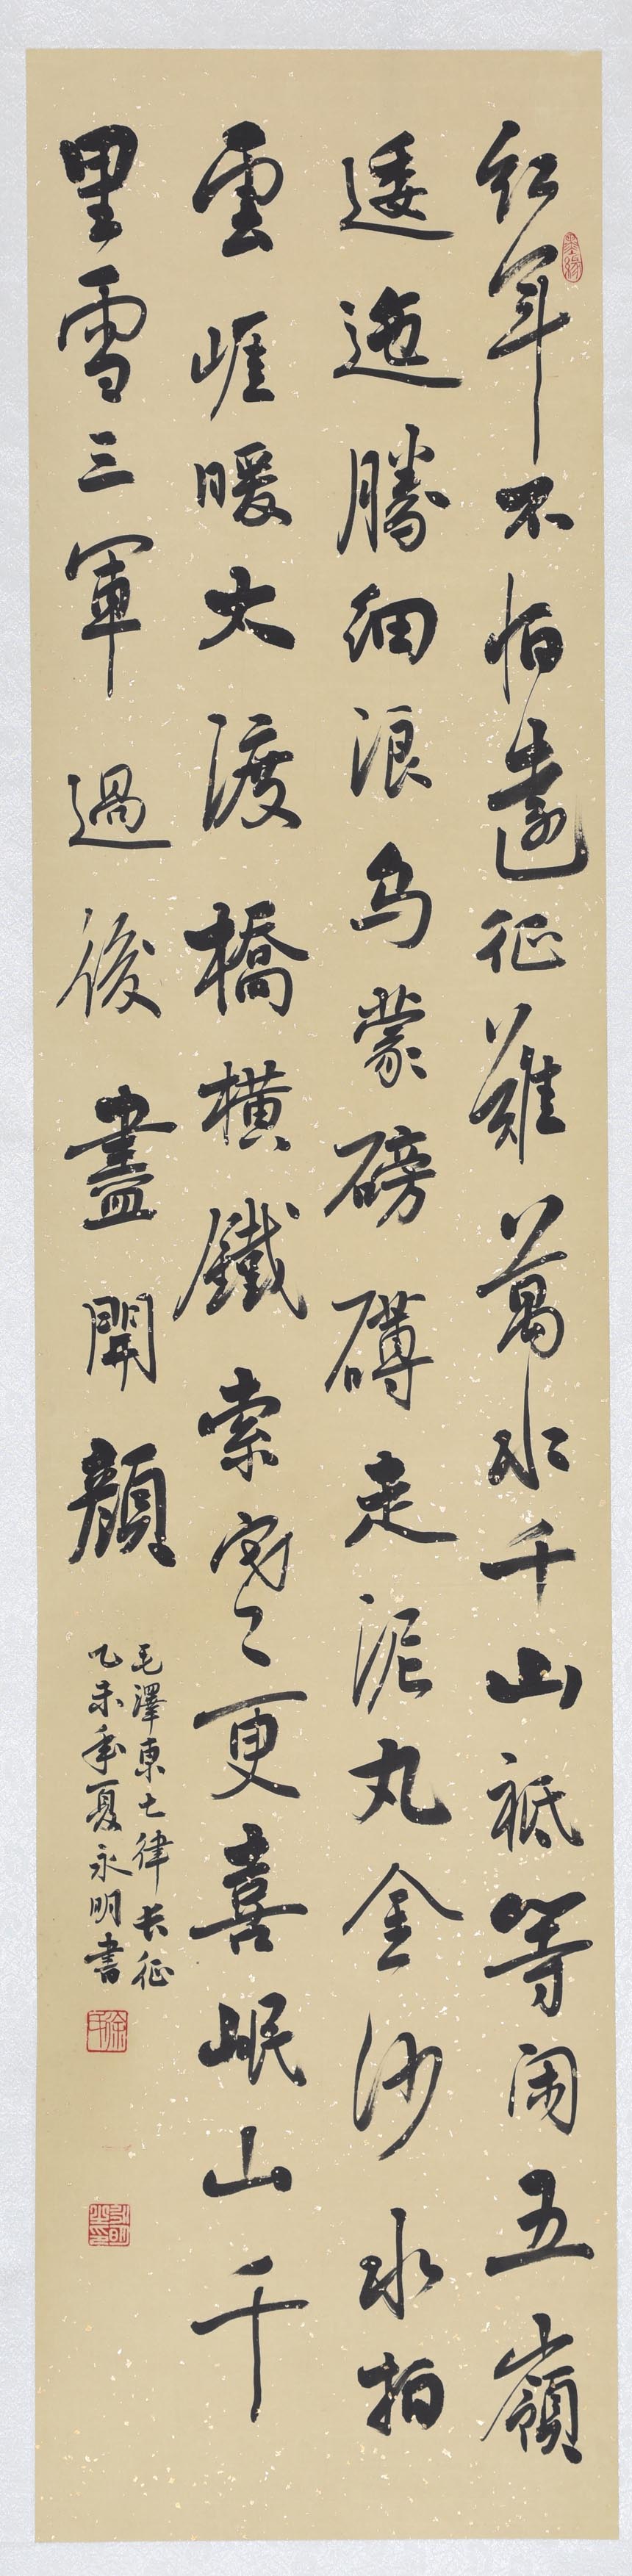 紅軍不怕遠征難萬水千山祗等闲五嶺
逶迤騰細浪乌蒙磅礴走泥丸金沙水拍
雲崖暖大渡橋橫鐵索寒更喜岷山千
里雪三軍過後盡開顏
毛澤東七律长征
乙未年夏永明書
墨緣
徐氏